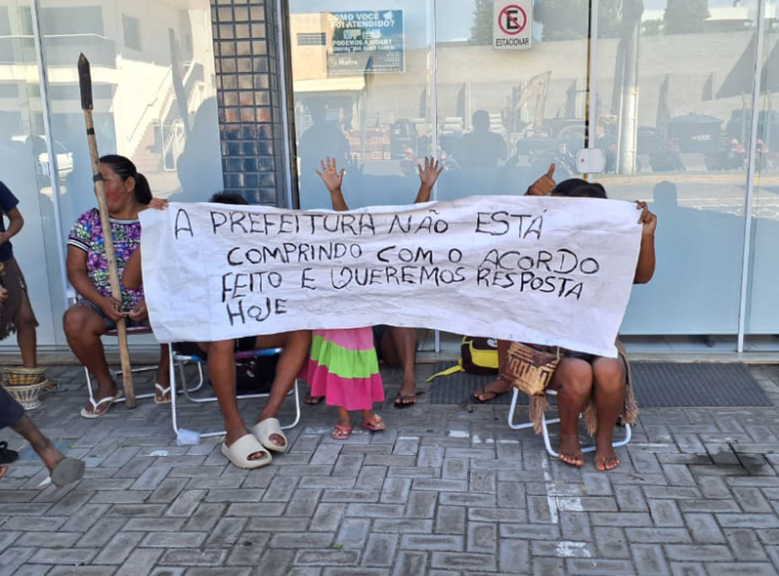 COMO VOCÊ
FOI ATENDIDO?
E
ESTACIONAR
A PREFEITURA NÃO ESTÁ
COMPRINDO COM O ACORDO
FEITO E QUEREMOS RESPOSTA
HOJE